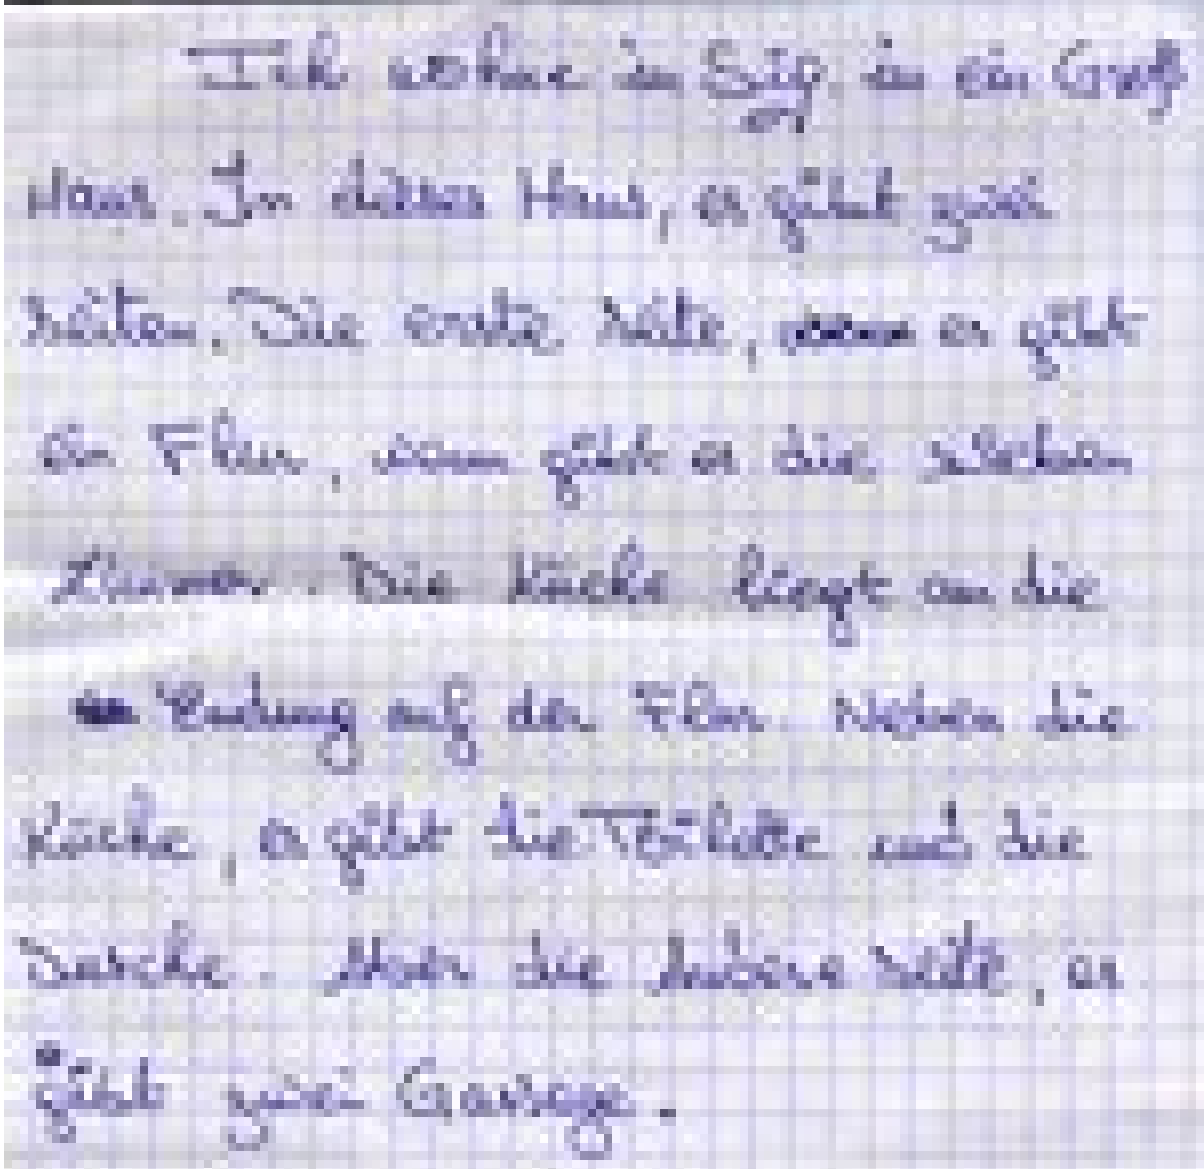 Ich wohne in in ein Groß
Haus. In dieses Haus, es gibt zwei
Seiten. Die erste Seite, es gibt
ein Flur, wenn gibt es die
Zimmer. Die Küche liegt an die
Endung auf der Flur. Neben die
Küche, es gibt die Toilette und die
Dusche. Aber die andere Seite, es
gibt zwei Garage.